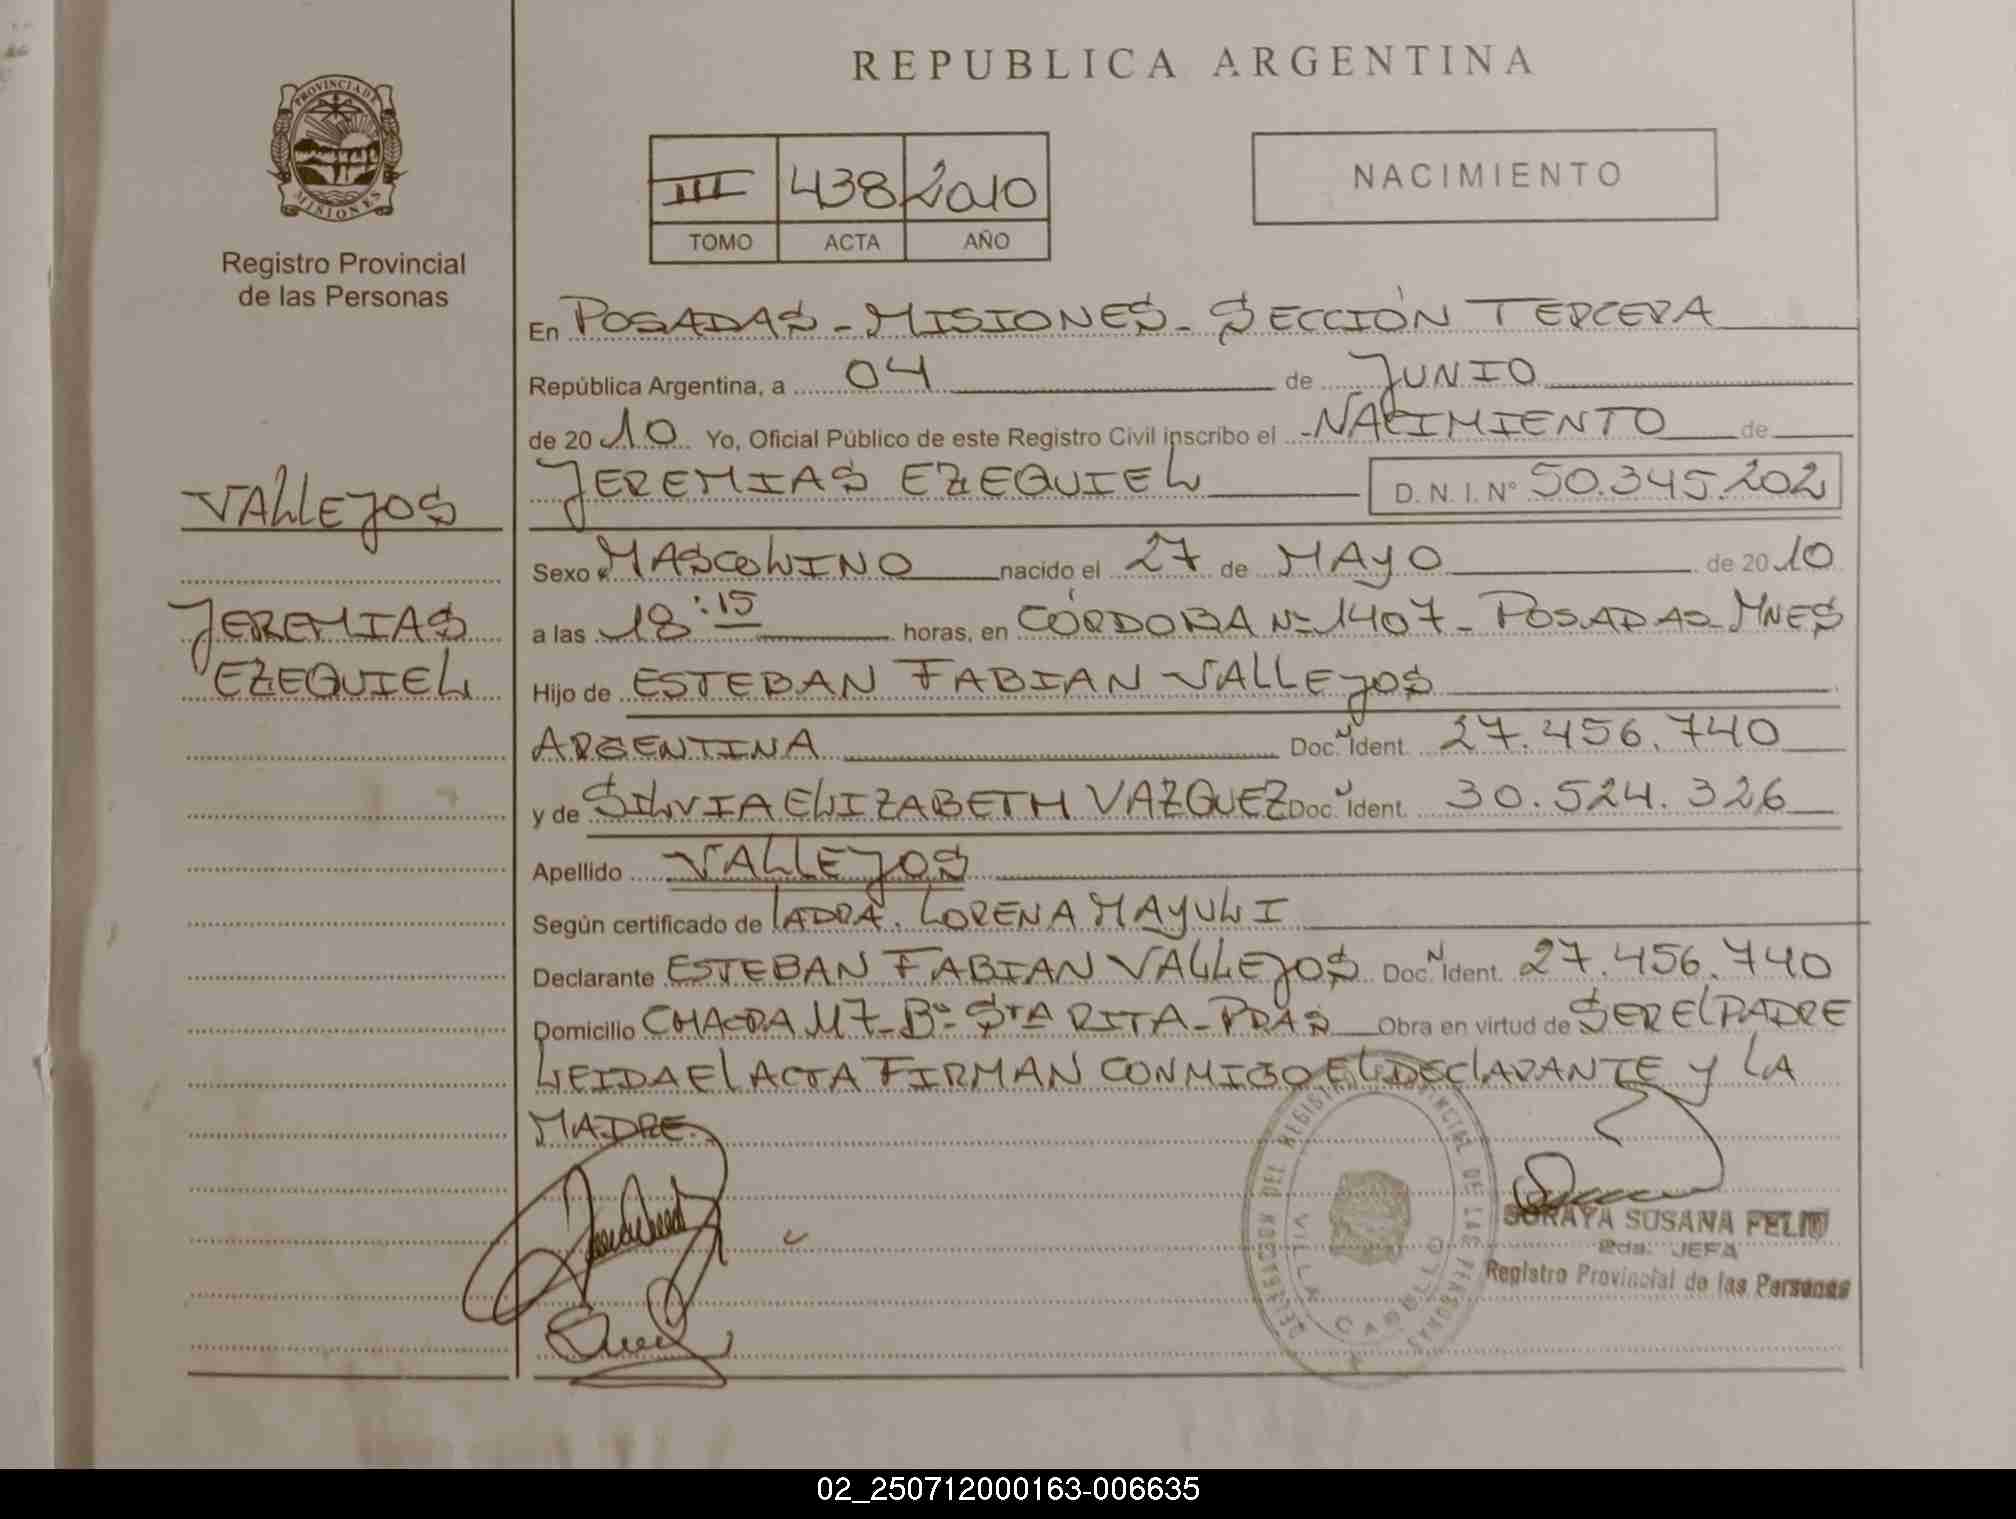 REPUBLICA ARGENTINA
PROVINCIA DE
MISIONES
Registro Provincial
de las Personas
III 438 2010
TOMO ACTA AÑO
NACIMIENTO
En POSADAS - MISIONES - SECCIÓN TERCERA
República Argentina, a 04 de JUNIO
de 2010 Yo, Oficial Público de este Registro Civil inscribo el NACIMIENTO de
JEREMIAS EZEQUIEL D. N. I. N° 50.345.202
VALLEJOS
Sexo MASCULINO nacido el 27 de MAYO de 2010
JEREMIAS
a las 18:15 horas, en CÓRDOBA Nº 1407 - POSADAS - MNES
EZEQUIEL
Hijo de ESTEBAN FABIAN VALLEJOS
ARGENTINA Doc. N Ident. 27.456.740
y de SILVIA ELIZABETH VAZQUEZ Doc. N Ident. 30.524.326
Apellido VALLEJOS
Según certificado de LA DRA. LORENA MAYULI
Declarante ESTEBAN FABIAN VALLEJOS Doc. N Ident. 27.456.740
Domicilio CHACRA 117 - Bº STA RITA - PDAS Obra en virtud de SER EL PADRE
LEIDA EL ACTA FIRMAN CONMIGO EL DECLARANTE Y LA
MADRE.
DELEGACION DEL REGISTRO PROVINCIAL DE LAS PERSONAS
VILLA CABELLO
SORAYA SUSANA FELIU
2da. JEFA
Registro Provincial de las Personas
02_250712000163-006635